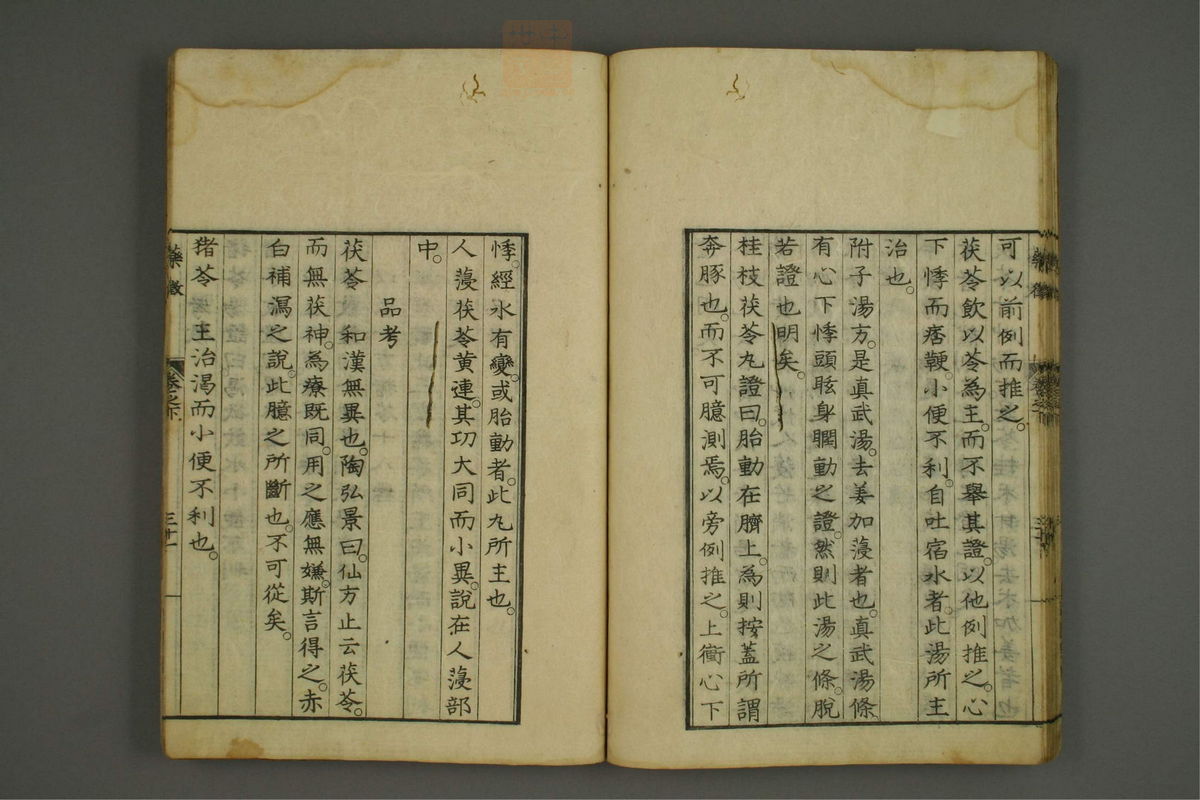 可以前例而推之。
茯苓飲以苓為主。而不舉其證。以他例推之。心
下悸而痞鞕。小便不利。自吐宿水者。此湯所主
治也。
附子湯方。是真武湯。去姜加薓者也。真武湯條
有心下悸頭眩身瞤動之證。然則此湯之條。脫
若證也明矣。
桂枝茯苓丸證曰。胎動在臍上。為則按蓋所謂
奔豚也。而不可臆測焉。以旁例推之。上衝心下
悸。經水有變。或胎動者。此丸所主也。
人薓茯苓黃連。其功大同而小異。說在人薓部
中。
品考
茯苓 和漢無異也。陶弘景曰。仙方止云茯苓。
而無茯神。為療既同。用之應無嫌。斯言得之。赤
白補瀉之說。此臆之所斷也。不可從矣。
猪苓 主治渴而小便不利也。
藥徵 卷之下 三十一